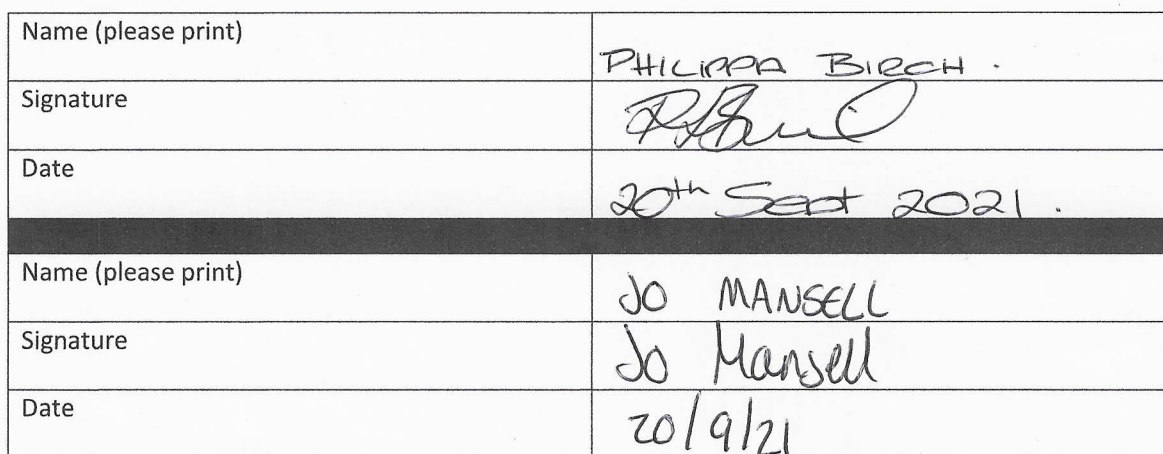 Name (please print)
PHILIPPA BIRCH .
Signature
Date
20th Sept 2021 .
Name (please print)
JO MANSELL
Signature
Jo Mansell
Date
20/9/21